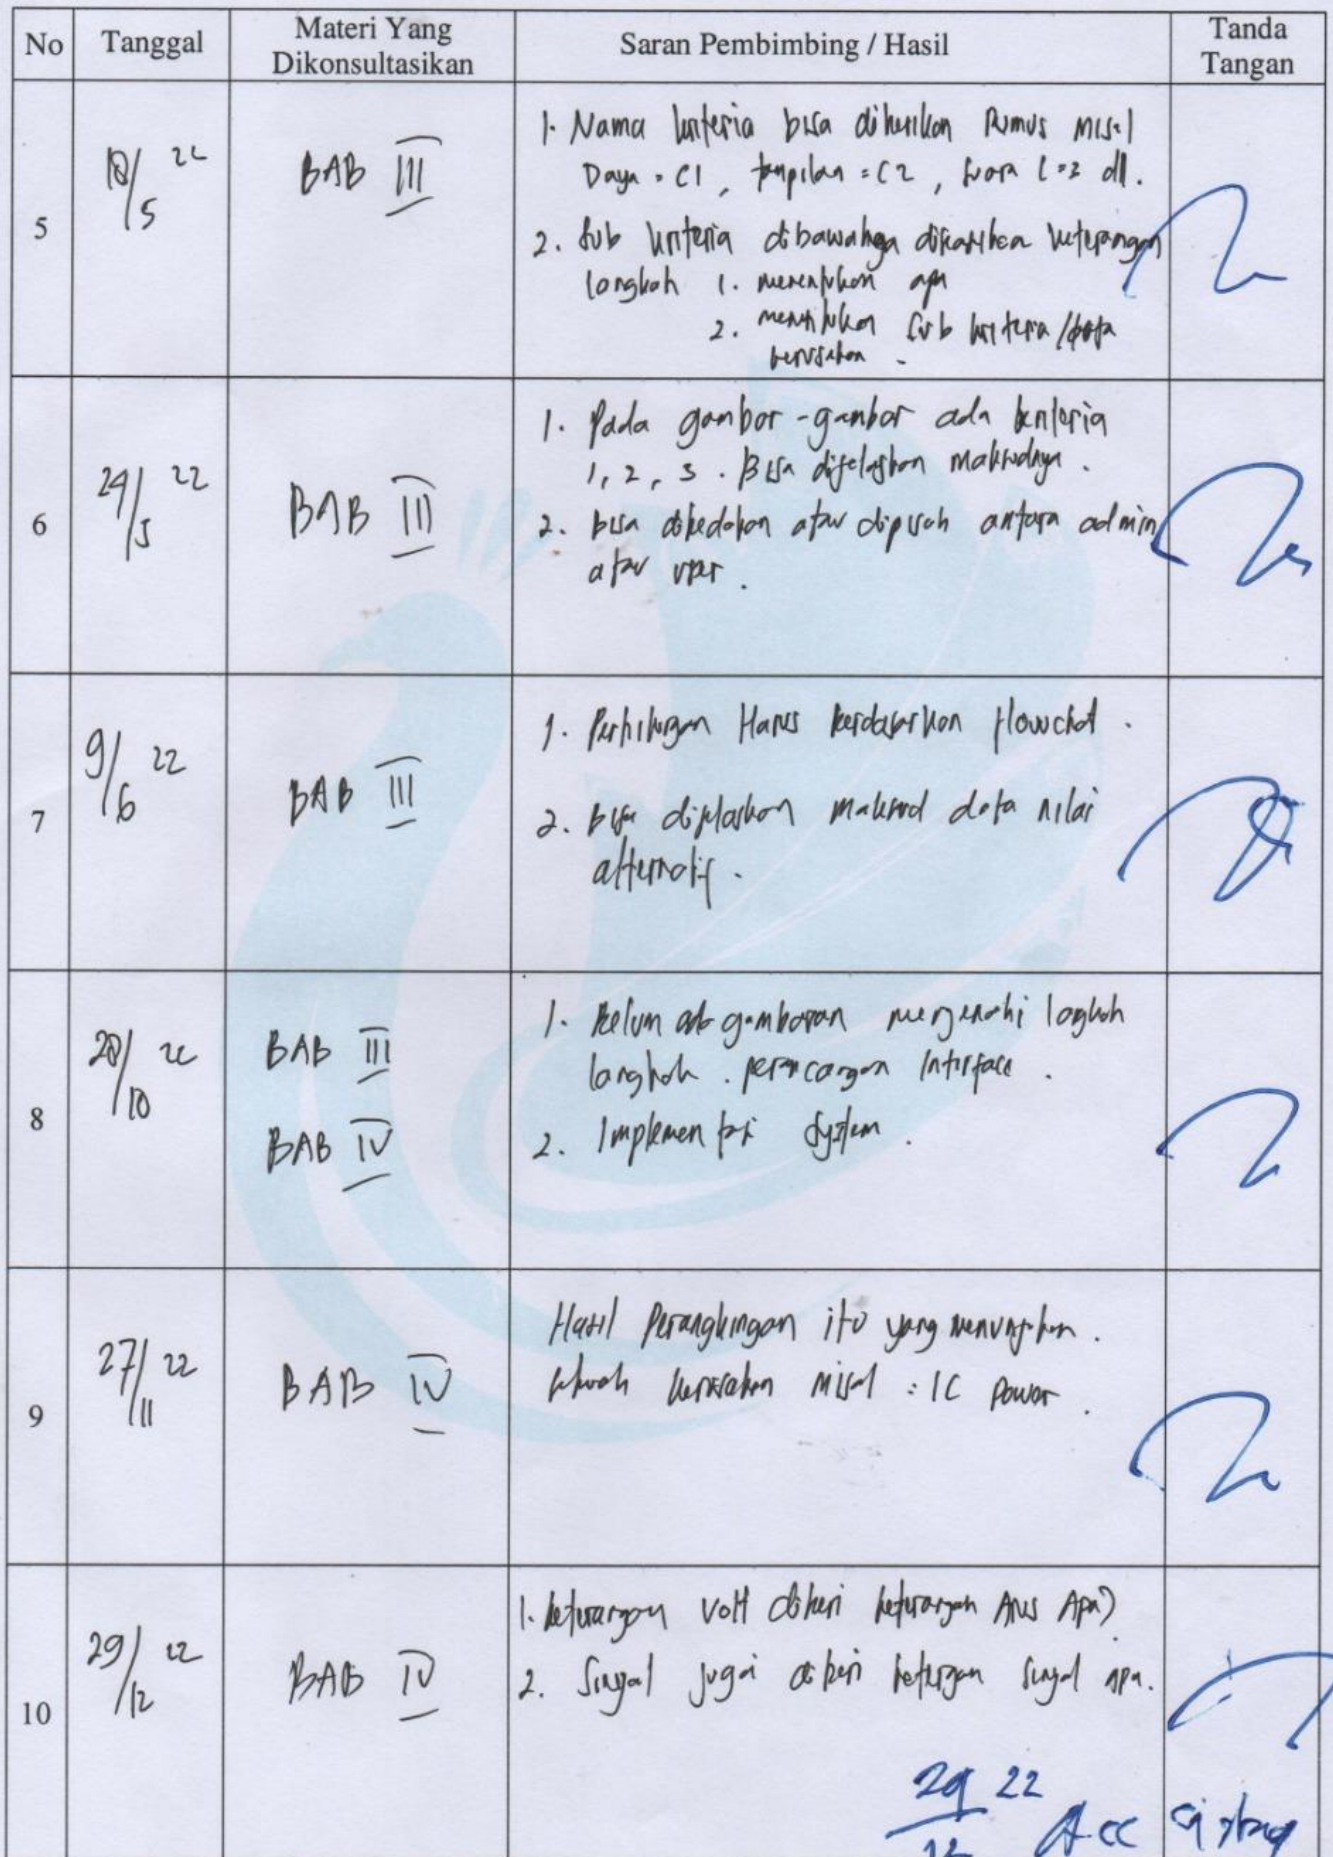 No Tanggal Materi Yang Dikonsultasikan Saran Pembimbing / Hasil Tanda Tangan
5 18/5 22 BAB III
1. Nama kriteria bisa diberikan Rumus misal
Daya = C1, tampilan = C2, suara C=3 dll.
2. Sub kriteria dibawahnya dikasihkan keterangan
langkah 1. menentukan apa
2. menentukan sub kriteria/data
kerusakan.
6 24/5 22 BAB III
1. Pada gambar-gambar ada kriteria
1, 2, 3. Bisa dijelaskan maksudnya.
2. Bisa dibedakan atau dipisah antara admin
atau user.
7 9/6 22 BAB III
1. Perhitungan Harus berdasarkan flowchat.
2. Bisa dijelaskan maksud data nilai
alternatif.
8 28/10 22 BAB III
BAB IV
1. Belum ada gambaran mengenahi langkah
langkah. perancangan Interface.
2. Implementasi System.
9 27/11 22 BAB IV
Hasil Perangkingan itu yang menunjukan.
kerusakan misal : IC Power.
10 29/12 22 BAB IV
1. keterangan Volt diberi keterangan Arus Apa?
2. Sinyal juga diberi keterangan sinyal apa.
29/12 22 Acc